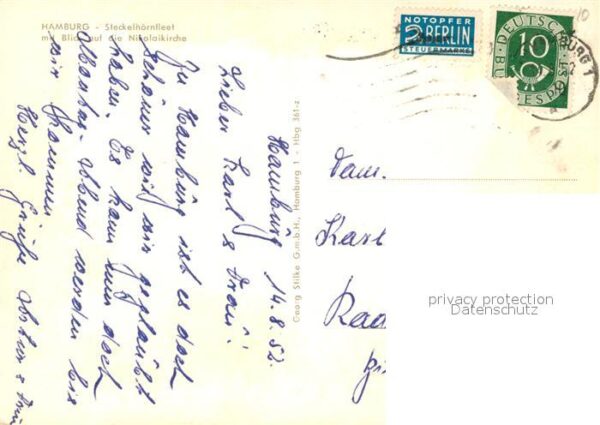 HAMBURG - Steckelhörnfleet
mit Blick auf die Nikolaikirche
NOTOPFER
2 BERLIN
STEUERMARKE
DEUTSCHE BUNDESPOST
10
BURG 1
10
Georg Stilke G.m.b.H., Hamburg 1 - Hbg 361-z
Hamburg 14.8.52.
Lieber Karl & Frau!
In Hamburg ist es doch
schöner wie wir geglaubt
haben. Es kann nun doch
Montag-Abend werden bis
wir kommen
Herzl. Grüße Artur & Frau
Fam.
Karl
Rad
privacy protection
Datenschutz